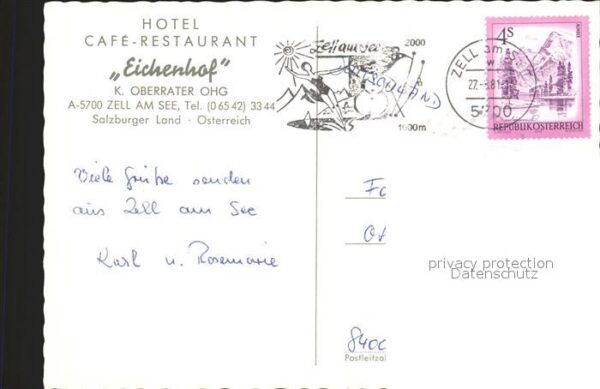 HOTEL
CAFÉ-RESTAURANT
„Eichenhof"
K. OBERRATER OHG
A-5700 ZELL AM SEE, Tel. (0 65 42) 33 44
Salzburger Land · Österreich
Zell am See
2000
1000m
ZELL am
27.-8.81
5700
4S
REPUBLIK ÖSTERREICH
Viele Grüße senden
aus Zell am See
Karl u. Rosemarie
Fa
840
Postleitzal
privacy protection
Datenschutz